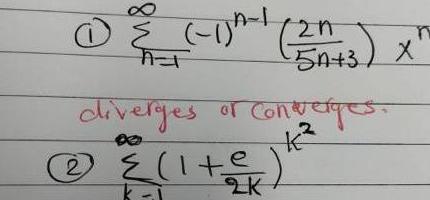 ① ∞ Σ n=1 (-1)^{n-1} (2n/5n+3) x^n
diverges or converges.
② ∞ Σ k=1 (1+e/2k)^{k^2}